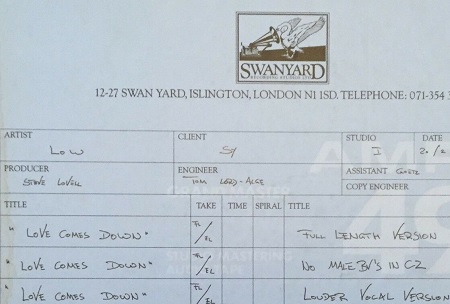 SWANYARD
RECORDING STUDIOS LTD
12-27 SWAN YARD, ISLINGTON, LONDON N1 1SD. TELEPHONE: 071-354 3
ARTIST CLIENT STUDIO DATE
LOW SY I 20/2
PRODUCER ENGINEER ASSISTANT GOETZ
STEVE LOVELL TOM LORD-ALGE COPY ENGINEER
TITLE TAKE TIME SPIRAL TITLE
"LOVE COMES DOWN" FL/EL FULL LENGTH VERSION
"LOVE COMES DOWN" FL/EL NO MALE BV'S IN C2
"LOVE COMES DOWN" FL/EL LOUDER VOCAL VERSION